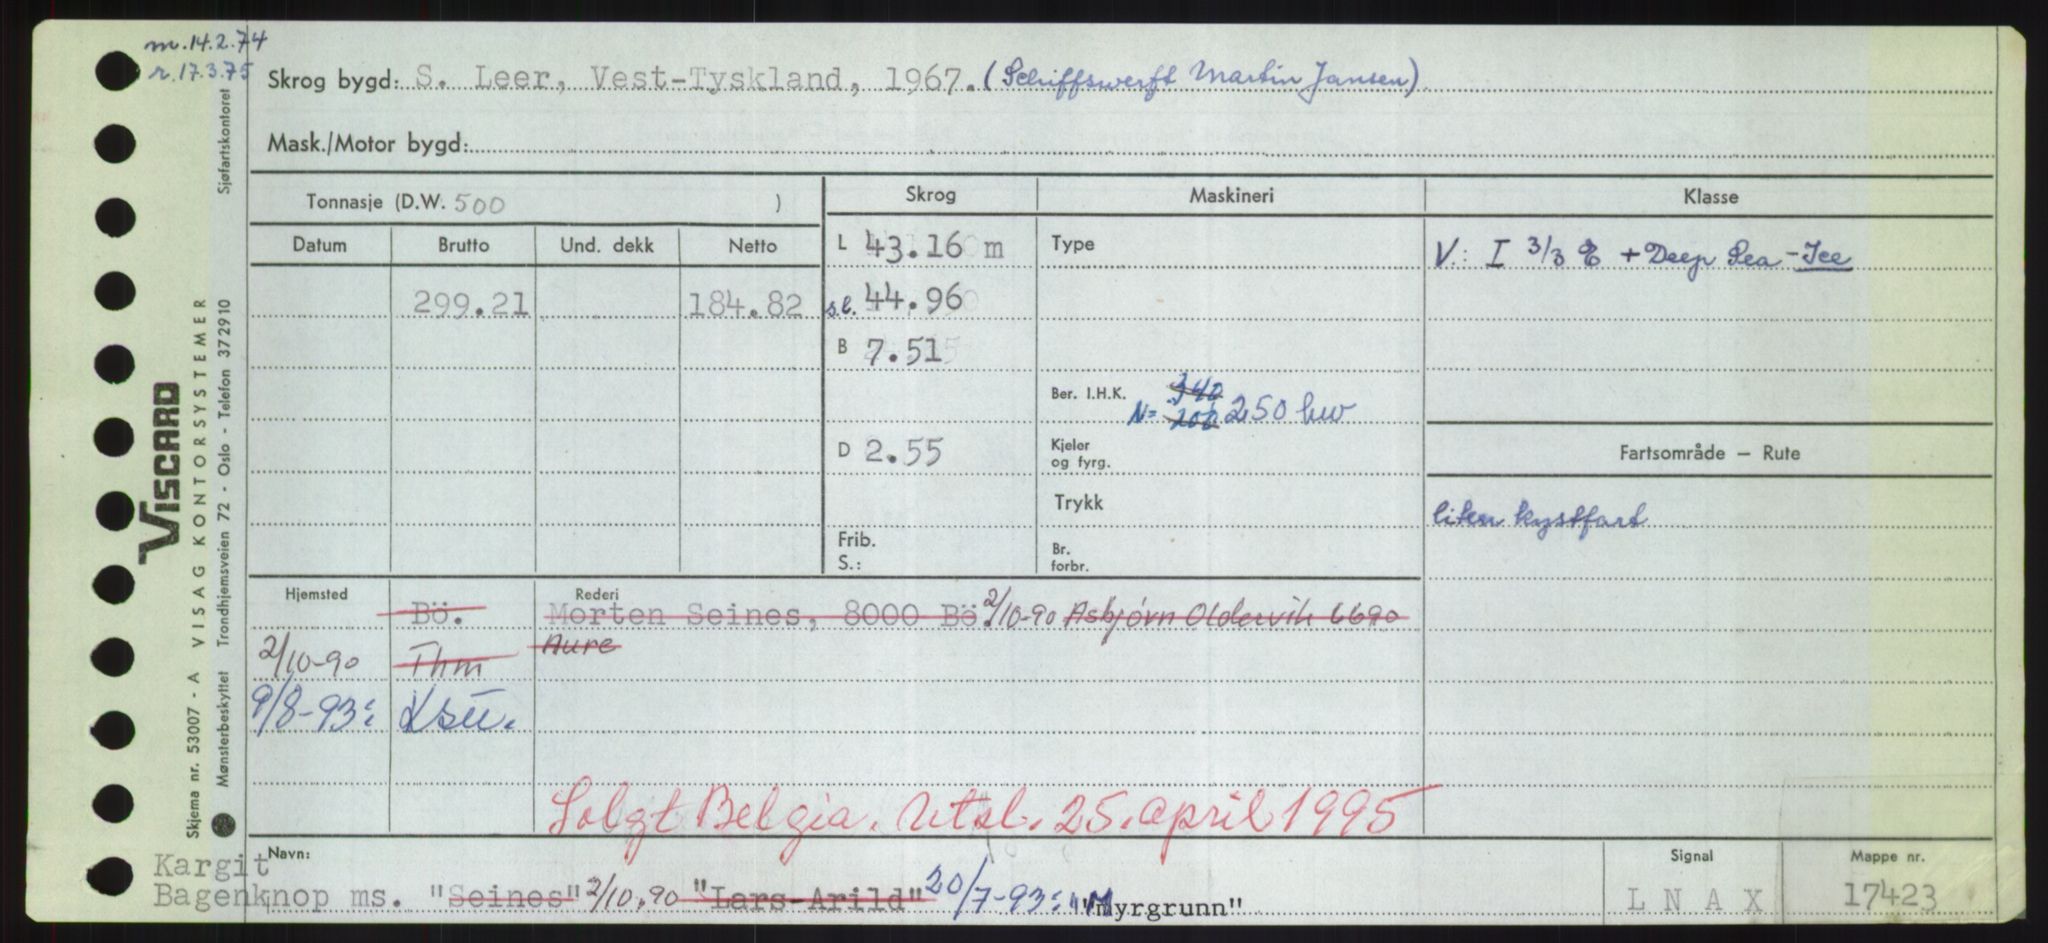 m.14.2.74
r.17.3.75
Skrog bygd: S. Leer, Vest-Tyskland, 1967. (Schiffswerft Martin Jansen)
Mask./Motor bygd:
Tonnasje (D.W. 500 )
Skrog
Maskineri
Klasse
Datum Brutto Und. dekk Netto
L 43.16 m
Type
V: I 3/3 E + Deep Sea - Ice
299.21 184.82
s.l. 44.96
B 7.51
Ber. I.H.K. 340
N= 200 250 kw
D 2.55
Kjeler
og fyrg.
Fartsområde — Rute
Trykk
liten kystfart
Frib.
S.:
Br.
forbr.
Hjemsted
Rederi
Bö. Morten Seines, 8000 Bö 2/10-90 Asbjørn Oldervik 6690
Aure
2/10-90 Thm
9/8-93: Ksu.
Solgt Belgia. Utsl. 25. april 1995
Navn:
Signal
Mappe nr.
Kargit
Bagenknop ms. "Seines" 2/10.90 "Lars-Arild" 20/7-93: "Myrgrunn"
L N A X
17423
VISCARD
Skjema nr. 53007 - A VISAG KONTORSYSTEMER
Mønsterbeskyttet Trondhjemsveien 72 - Oslo - Telefon 372910 Sjøfartskontoret